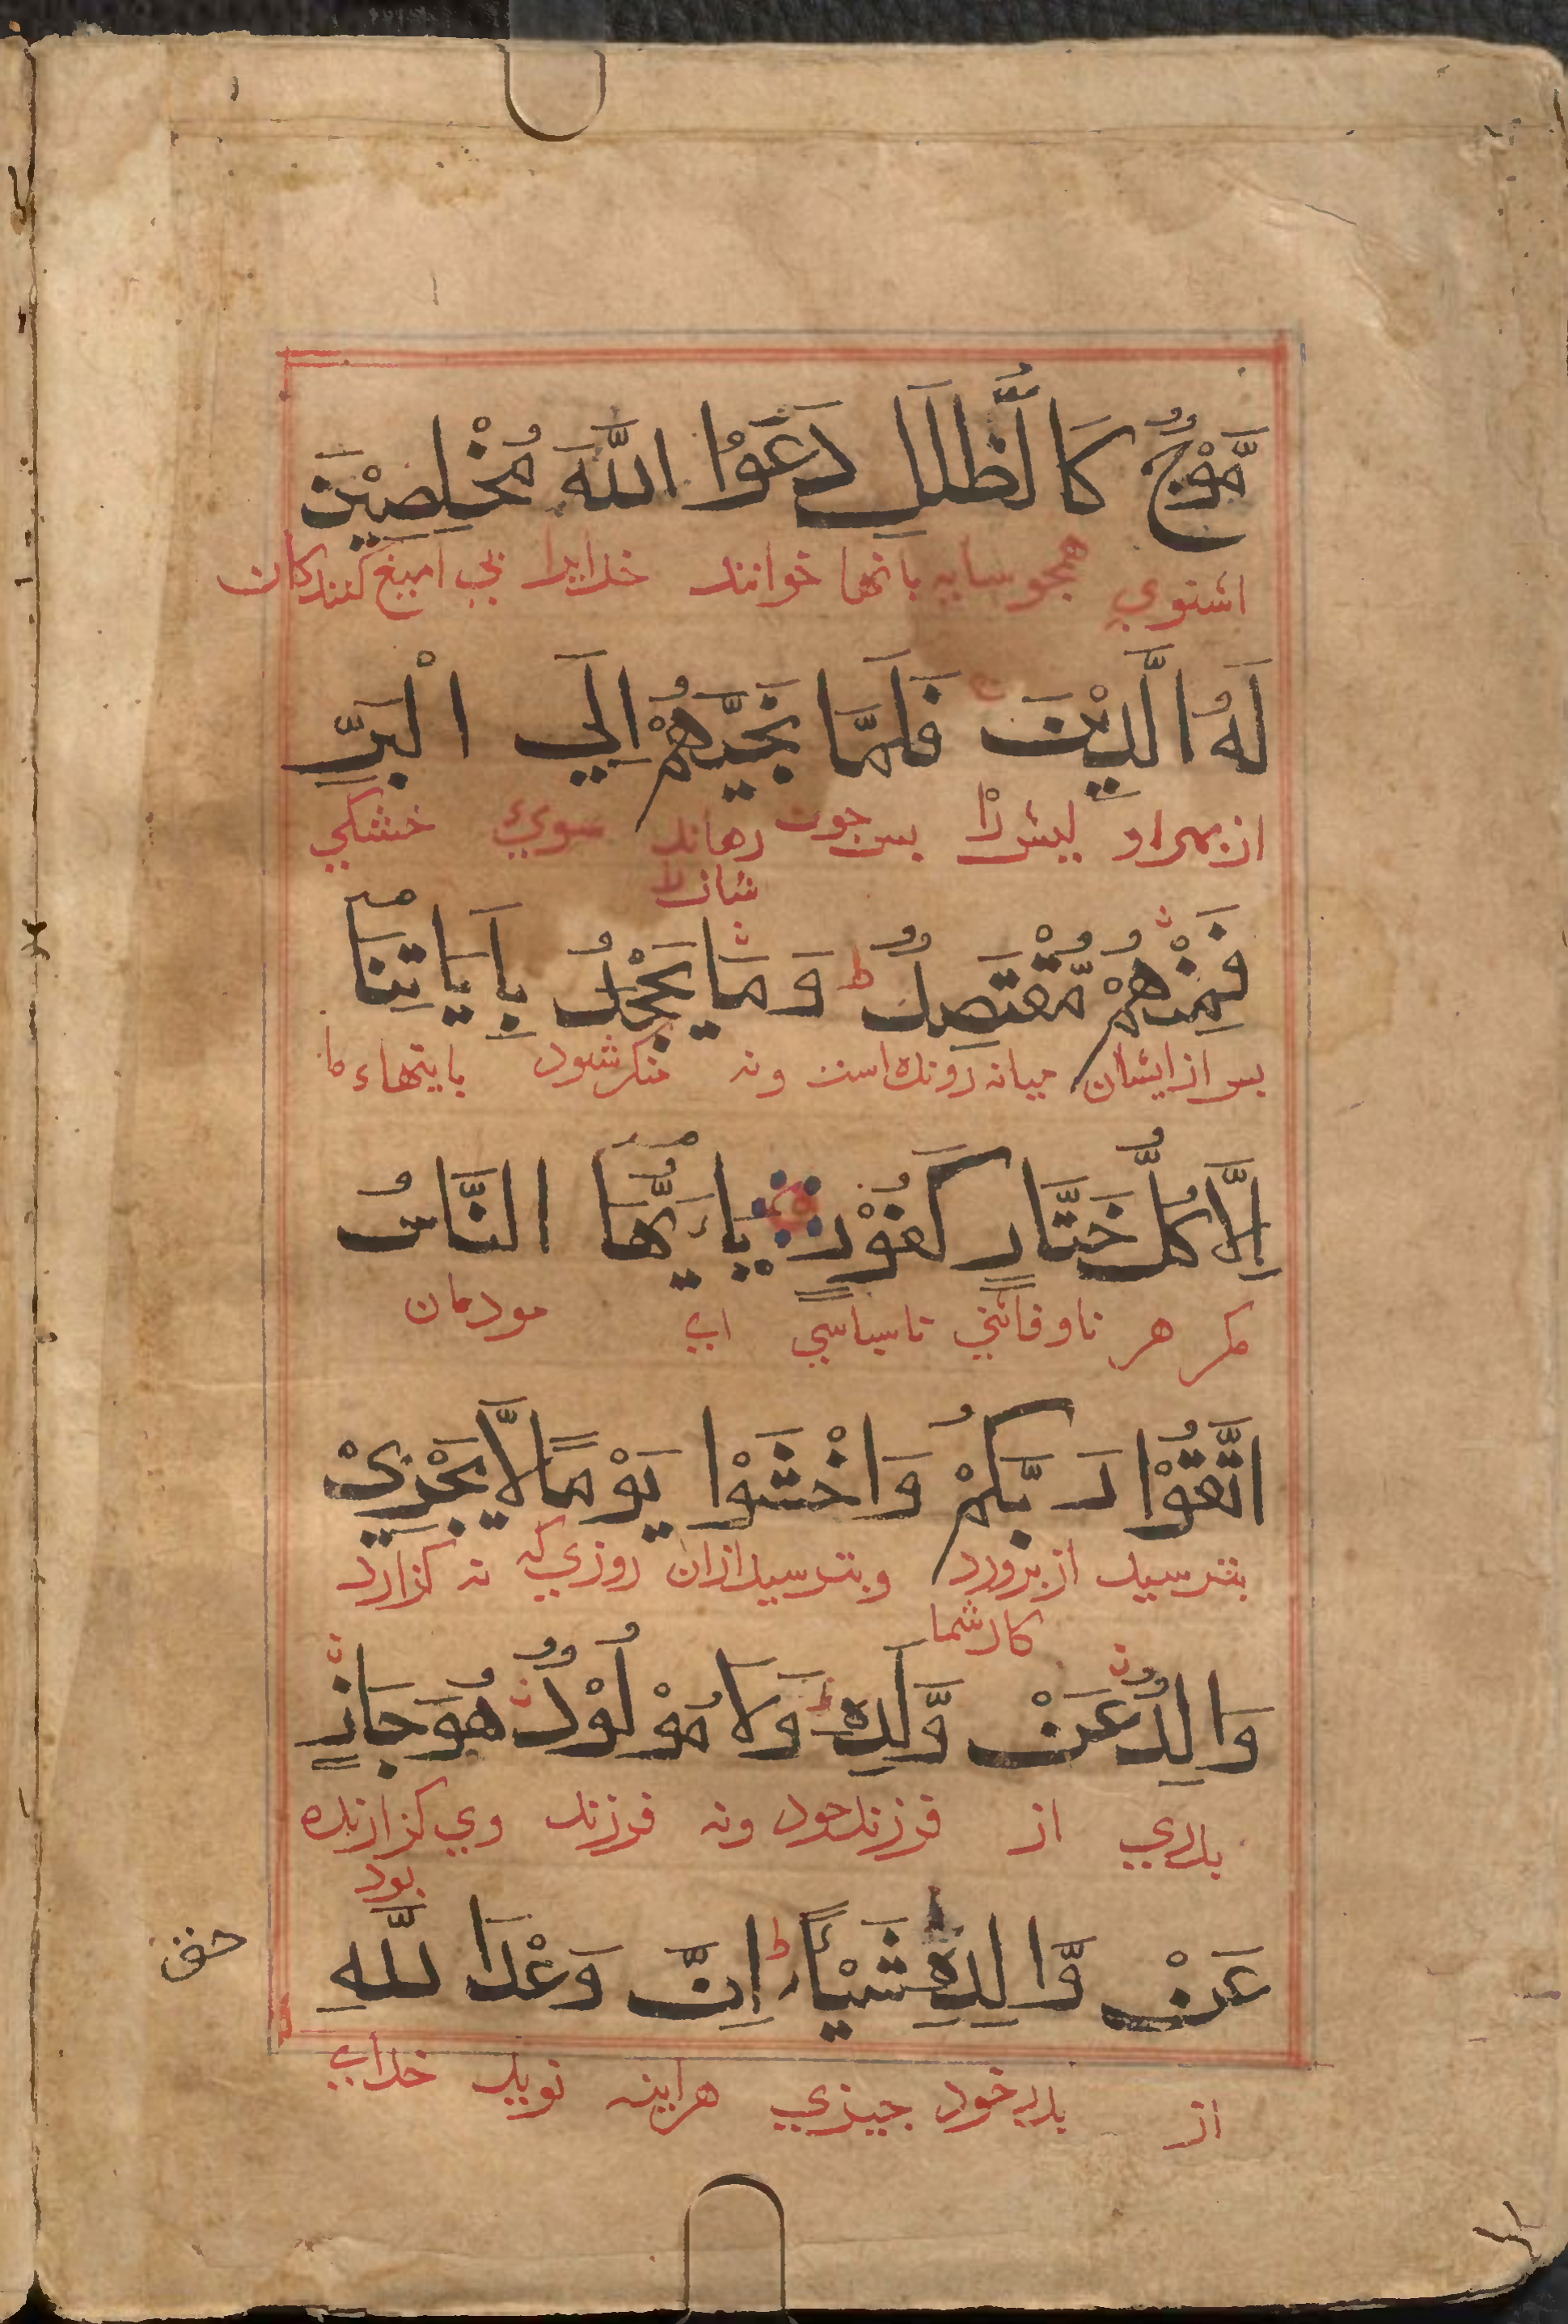 مَّوْجٌ كَالظُّلَلِ دَعَوُا اللَّهَ مُخْلِصِيْنَ
اشتوي همجو سايه بانها خوانند خدايرا بي اميغ كنندكان
لَهُ الَّدِيْنَ فَلَمَّا نَجَّيهُمْ اِلَي الْبَرِّ
از بهر او كيش را بس جون رهاند سوئ خشكي
شانرا
فَمِنْهُمْ مُّقْتَصِدٌ ط وَمَا يَجْحَدُ بِاَيَاتِنَا
بس از ايشان ميانه رونده است ونه منكر شود بايتهاء ما
اِلَّا كُلُّ خَتَّارٍ كَفُوْرٍ يَاءَيُّهَا النَّاسُ
مكر هر ناوفائي ناسپاسي اي مودمان
اتَّقُوْا رَبَّكُمْ وَاخْشَوْا يَوْمًا لَّا يَجْزِيْ
بترسيد از برورد وبترسيد ازان روزي كه نه كزارد
كار شما
وَالِدٌ عَنْ وَّلَدِهٖ وَلَا مَوْلُوْدٌ هُوَ جَازٍ
پدري از فرزند خود ونه فرزند وي كزارنده
بود
عَنْ وَّالِدِهٖ شَيْاءً ط اِنَّ وَعْدَا للَّهِ
حق
از پدر خود جيزي هراينه نويد خداي